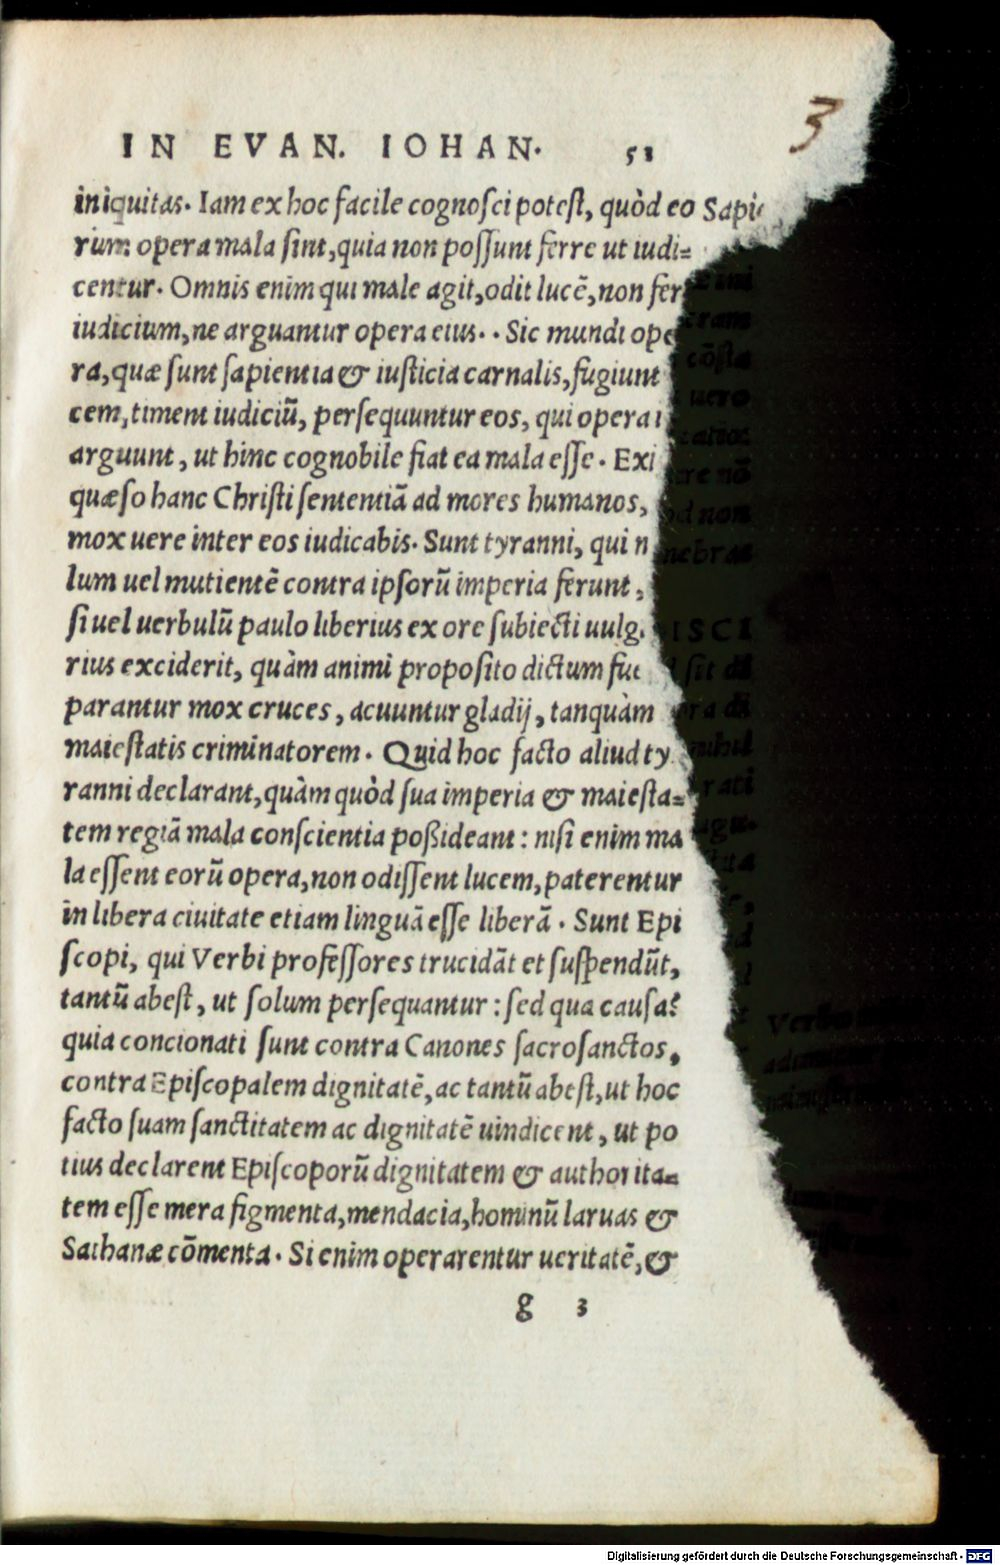 3
IN EVAN. IOHAN. 51
iniquitas. Iam ex hoc facile cognosci potest, quòd eo
rum opera mala sint, quia non possunt ferre ut iudi=
centur. Omnis enim qui male agit, odit lucē, non fer
iudicium, ne arguantur opera eius. . Sic mundi ope
ra, quæ sunt sapientia & iusticia carnalis, fugiunt
cem, timent iudiciū, persequuntur eos, qui opera
arguunt, ut hinc cognobile fiat ea mala esse. Exi
quæso hanc Christi sententiā ad mores humanos,
mox uere inter eos iudicabis. Sunt tyranni, qui n
lum uel mutientē contra ipsorū imperia ferunt,
si uel uerbulū paulo liberius ex ore subiecti uulg
rius exciderit, quàm animi proposito dictum fue
parantur mox cruces, acuuntur gladij, tanquàm
maiestatis criminatorem. Quid hoc facto aliud ty
ranni declarant, quàm quòd sua imperia & maiesta=
tem regiā mala conscientia poßideant: nisi enim ma
la essent eorū opera, non odissent lucem, paterentur
in libera ciuitate etiam linguā esse liberā. Sunt Epi
scopi, qui Verbi professores trucidāt et suspendūt,
tantū abest, ut solum persequantur: sed qua causa?
quia concionati sunt contra Canones sacrosanctos,
contra Episcopalem dignitatē, ac tantū abest, ut hoc
facto suam sanctitatem ac dignitatē uindicent, ut po
tius declarent Episcoporū dignitatem & authorita=
tem esse mera figmenta, mendacia, hominū laruas &
Sathanæ cōmenta. Si enim operarentur ueritatē, &
g 3
Sapi
Digitalisierung gefördert durch die Deutsche Forschungsgemeinschaft - DFG